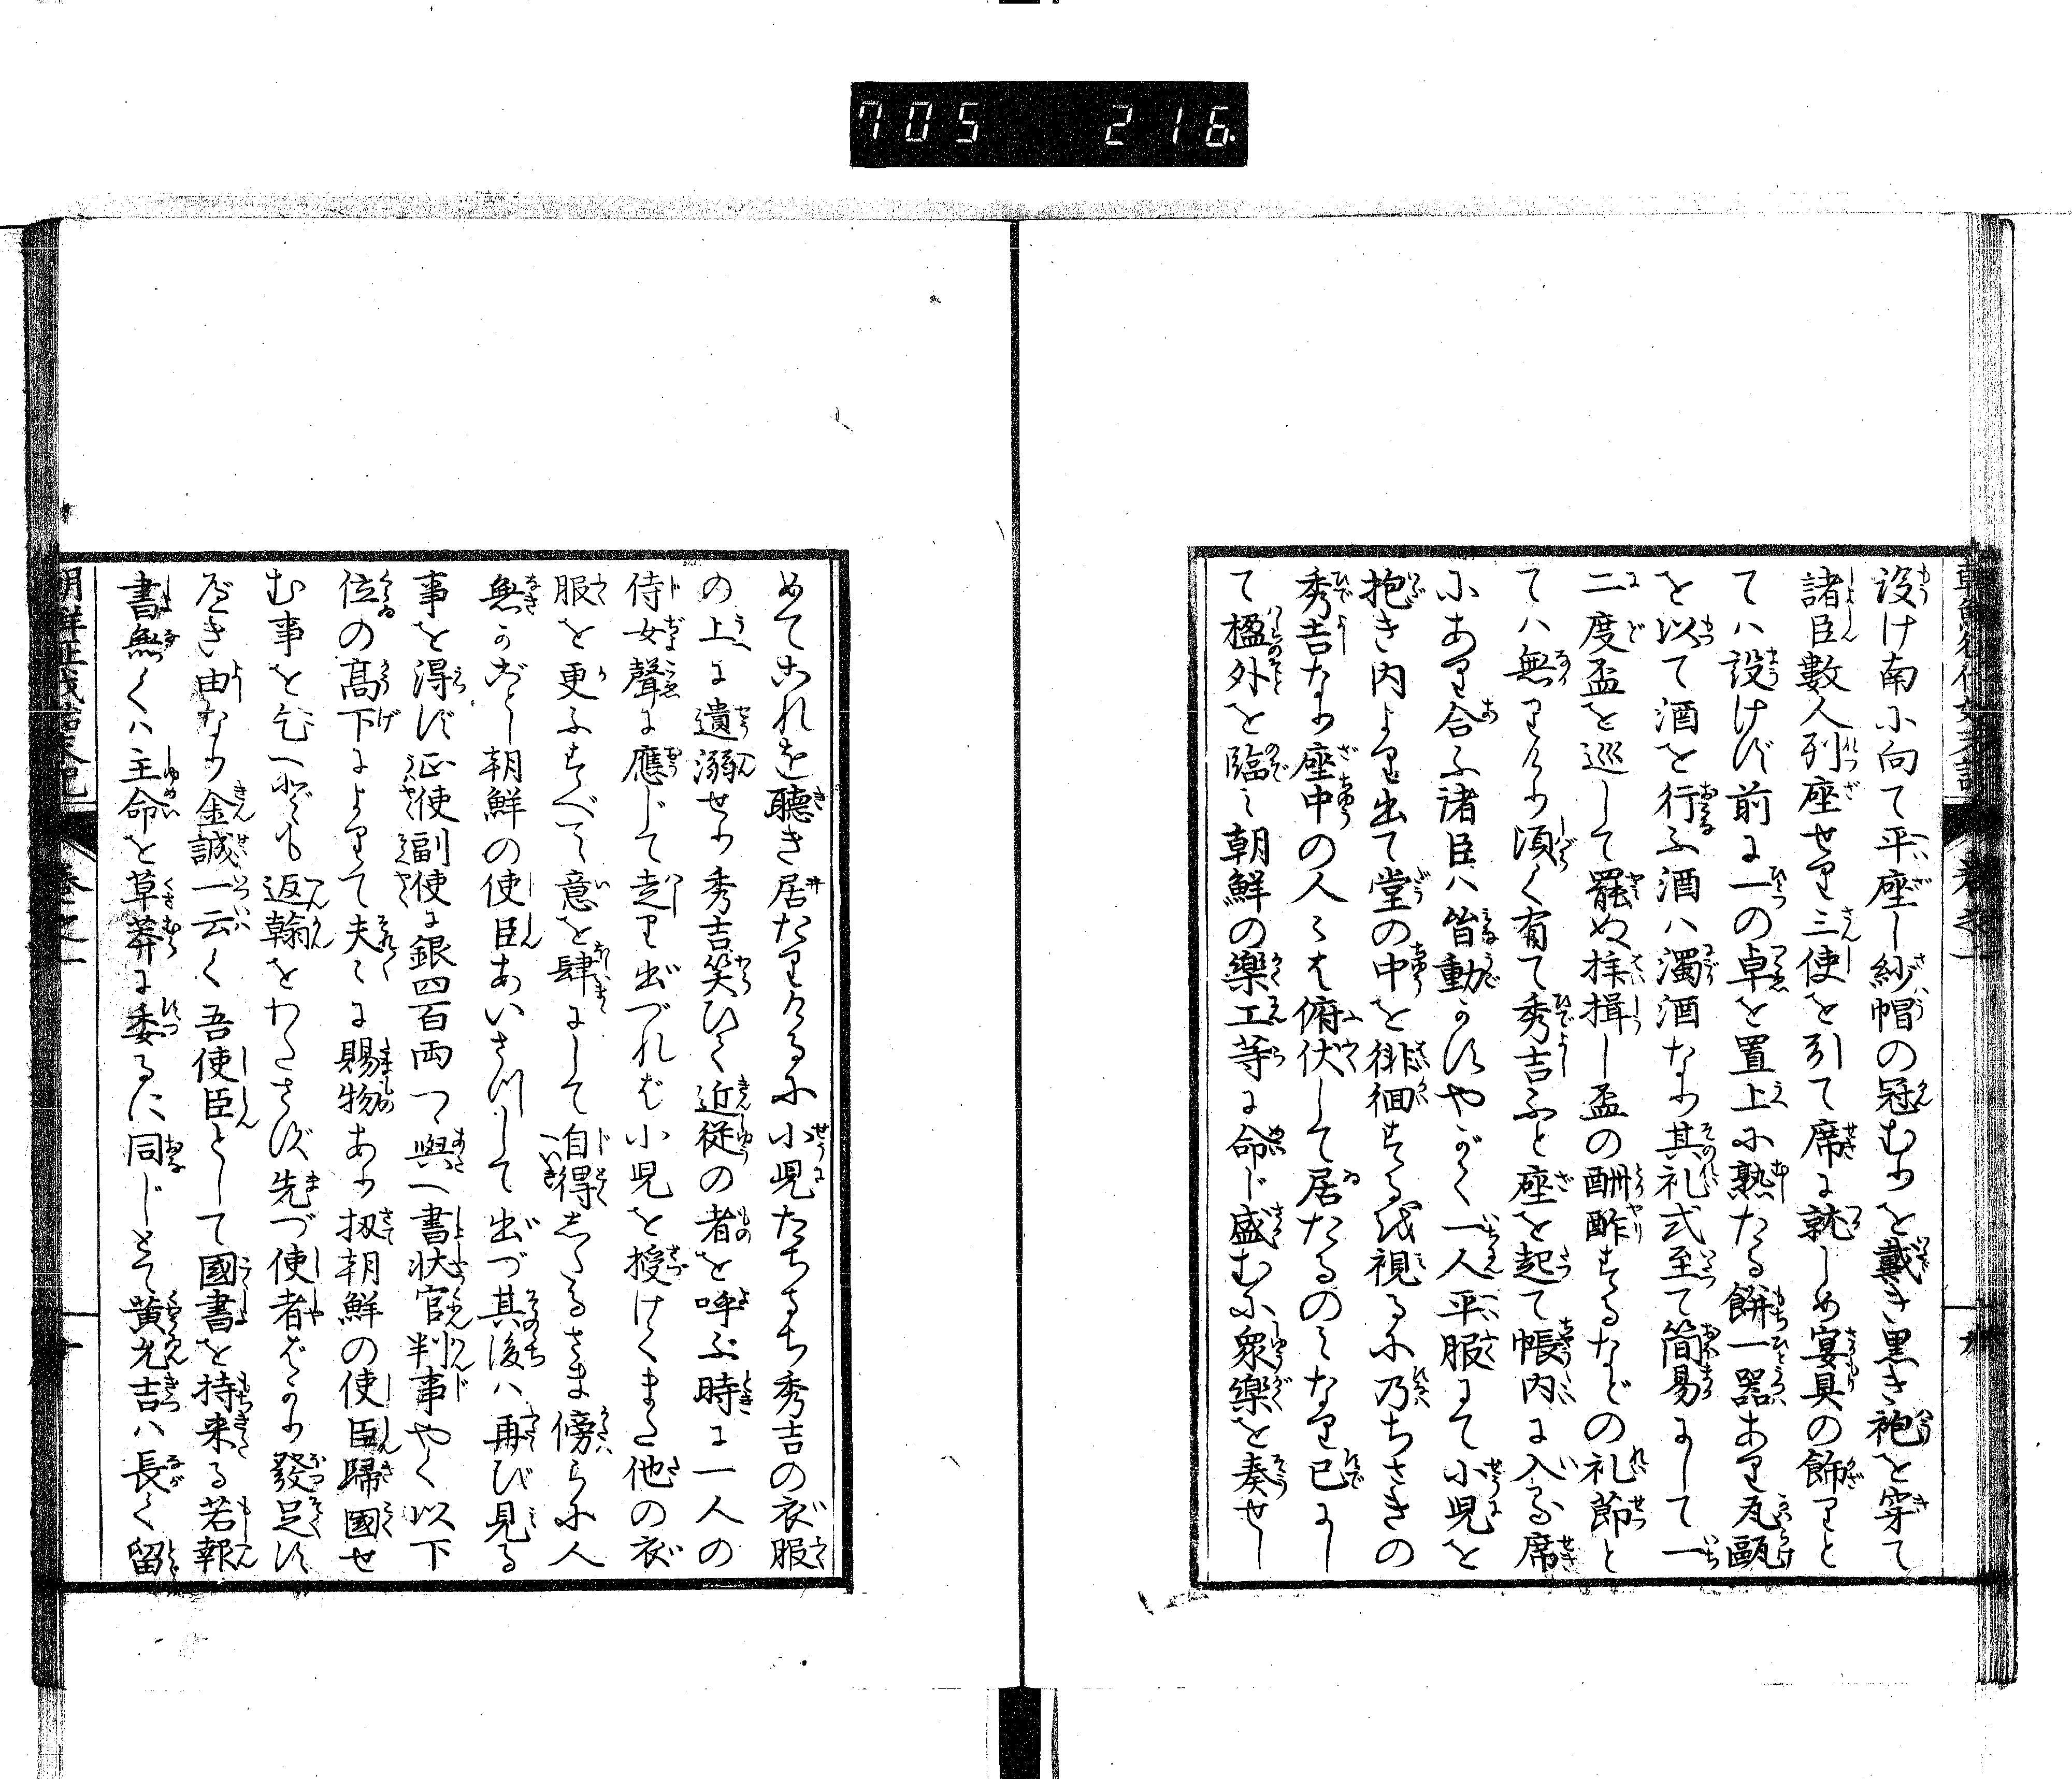 705 216
設け南に向て平座し紗帽の冠むりを戴き黒き袍を穿て
諸臣數人列座せり三使を引て席に就しめ宴具の飾りと
てハ設けず前に一の卓を置上に熟たる餅一器あり瓦甌
を以て酒を行ふ酒ハ濁酒なり其礼式至て簡易にして一
二度盃を巡して罷ぬ拝揖し盃の酬酢するなどの礼節と
てハ無りけり須く有て秀吉ふと座を起て帳内に入る席
にあり合ふ諸臣ハ皆動かずやがて一人平服にて小児を
抱き内より出て堂の中を徘徊する是を視るに乃ちさきの
秀吉なり座中の人々は俯伏して居たるのミなり已にし
て楹外を臨ミ朝鮮の樂工等に命じ盛むに衆樂を奏せし
めてこれを聴き居たりけるに小児たちまち秀吉の衣服
の上に遺溺せり秀吉笑ひて近従の者を呼ぶ時に一人の
侍女聲に應じて走り出づれば小児を授けてまた他の衣
服を更ふすべて意を肆にして自得したるさま傍らに人
無かごとし朝鮮の使臣あいさつして出づ其後ハ再び見る
事を得ず正使副使に銀四百両つゝ與へ書状官判事やく以下
位の高下によりて夫々に賜物あり扨朝鮮の使臣歸國せ
む事を乞へども返翰をわたさず先づ使者ばかり發足す
べき由なり金誠一云く吾使臣として國書を持来る若報
書無くハ主命を草莽に委るに同じとて黄允吉ハ長く留
朝鮮征伐始末記 巻之一 十